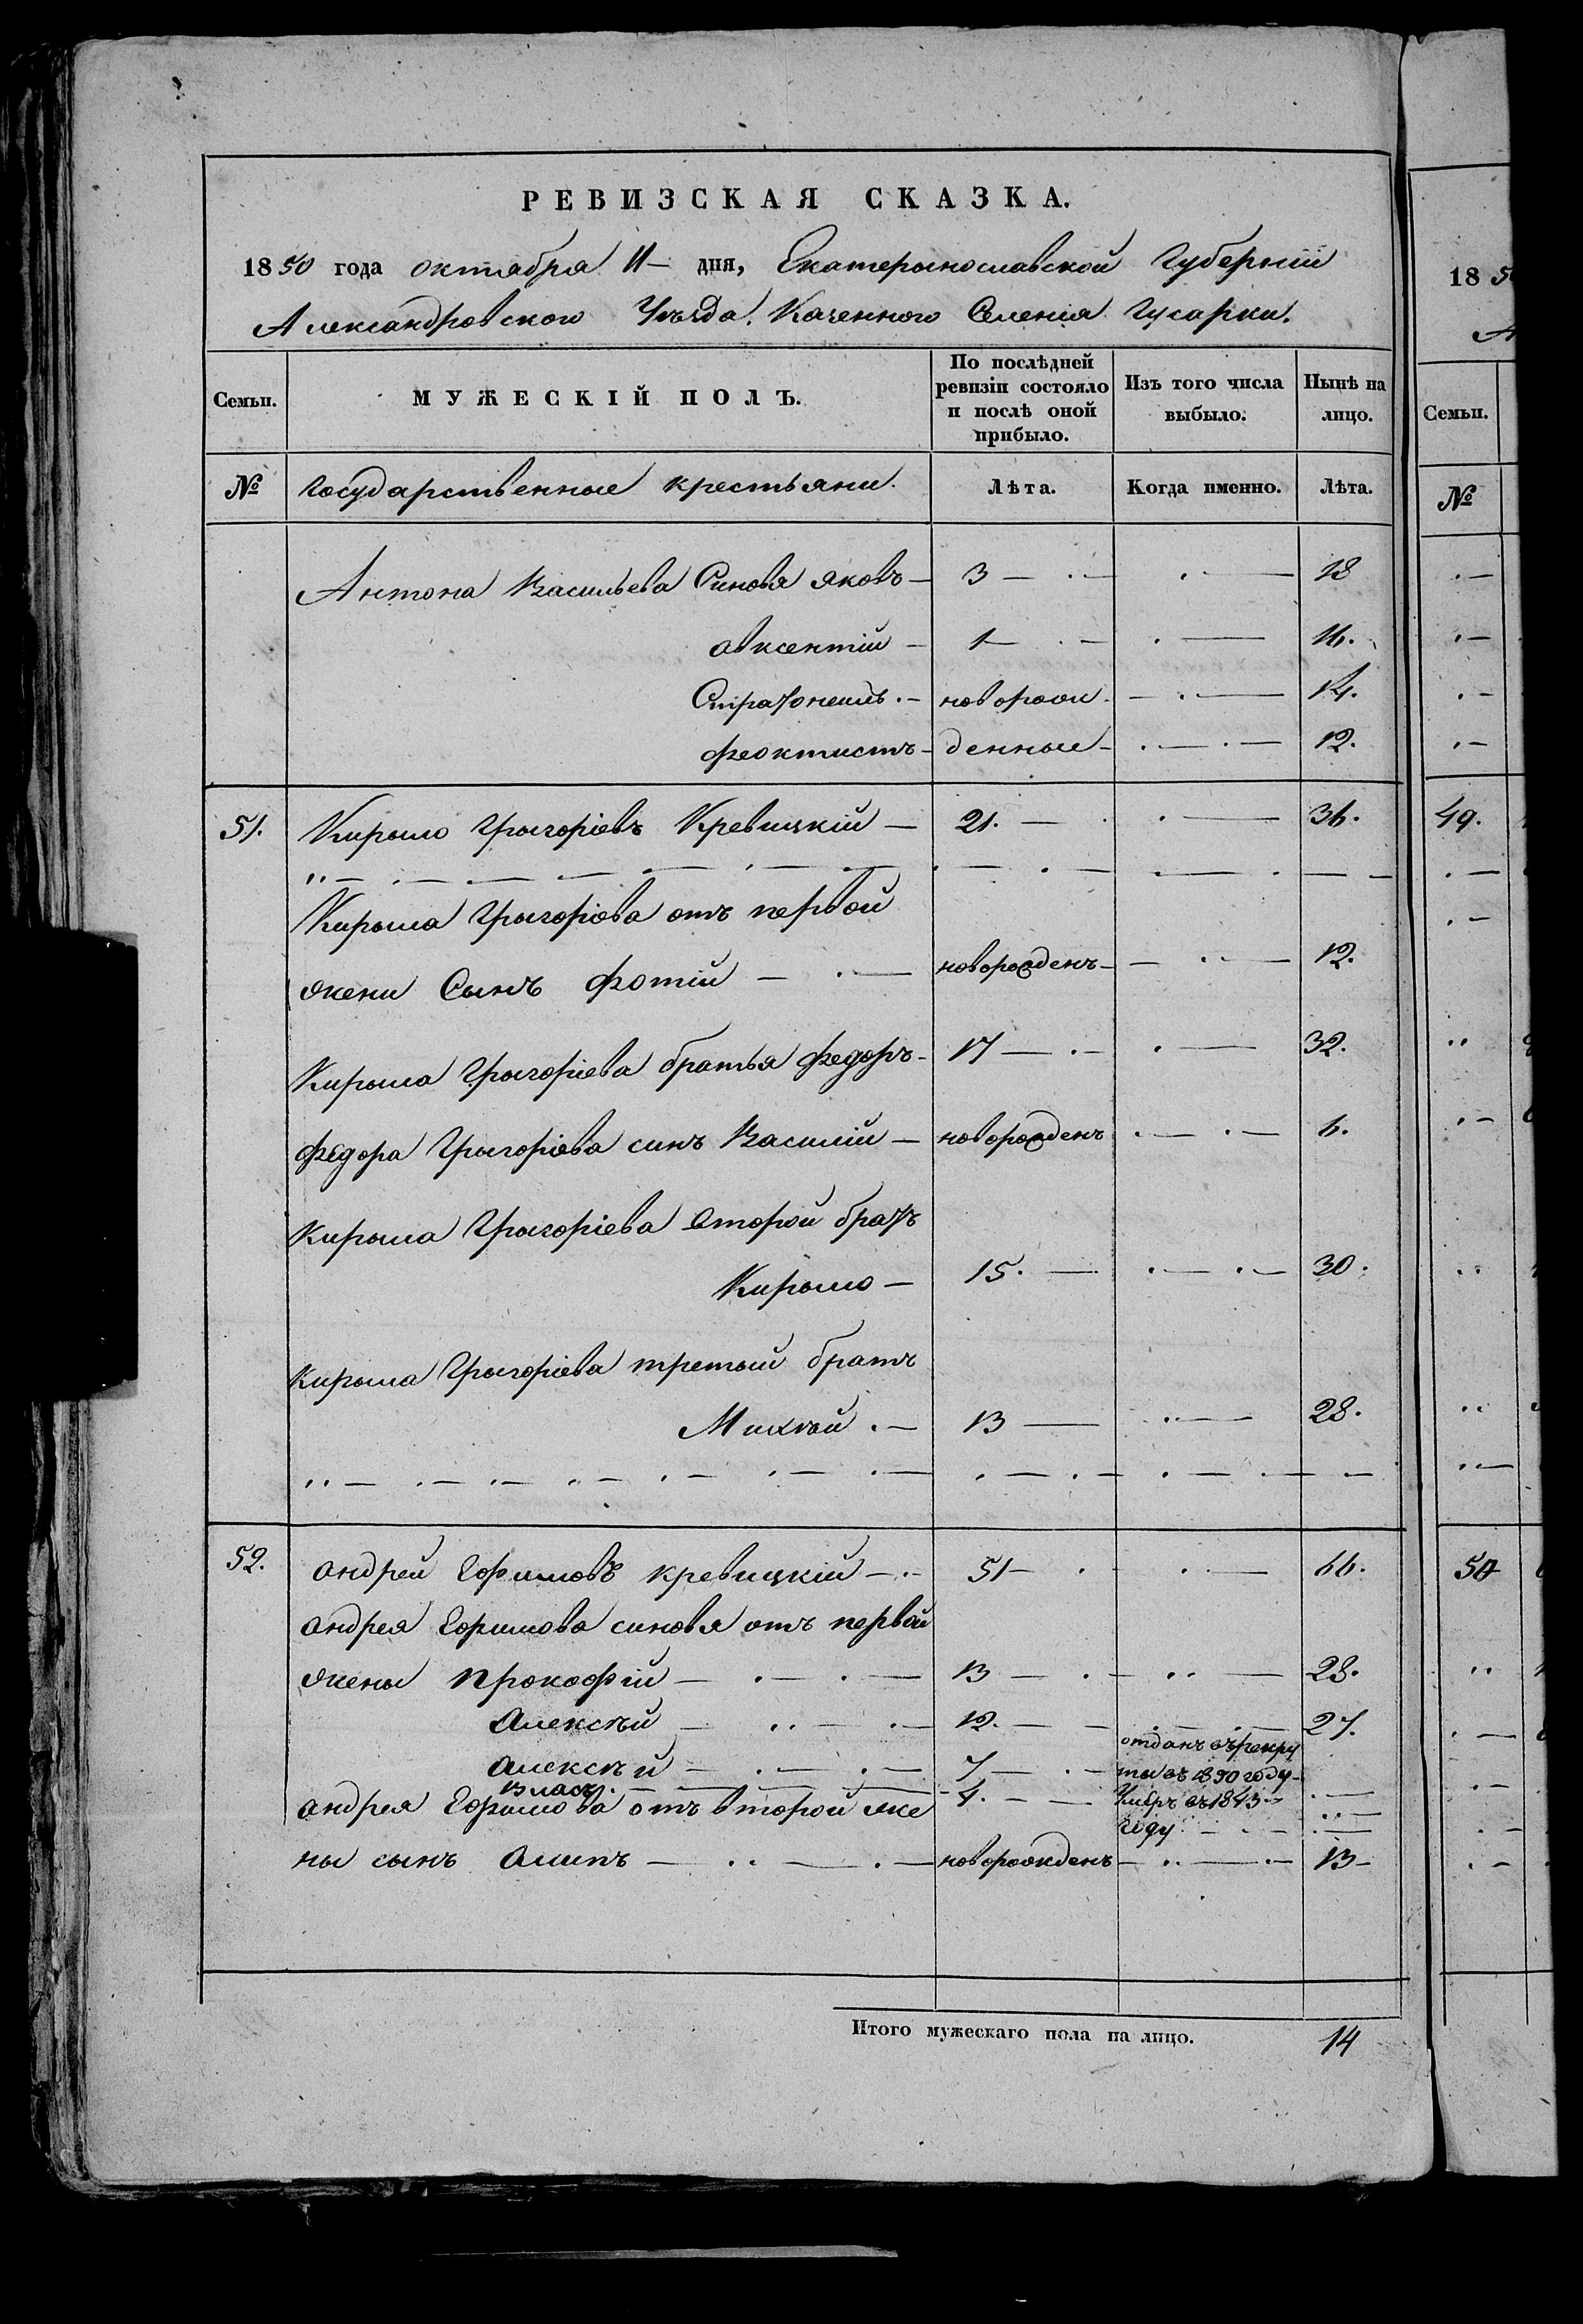 РЕВИЗСКАЯ СКАЗКА.
1850 года октября 11 дня, Екатеринославской Губерніи
Александровского Уезда. Казенного Селенія Гусарки.
Семьи. МУЖЕСКІЙ ПОЛЪ. По послѣдней ревизіи состояло и послѣ оной прибыло. Изъ того числа выбыло. Нынѣ на лицо.
№ Государственные крестьяни. Лѣта. Когда именно. Лѣта.
Антона Васильева Синовя Яковъ — 3 — 18
авксентій — 1 — 16.
новорож — 14.
Феоктистъ — денные — 12.
51. Кирыло Грыгоріевъ Кревицкій — 21. — 36.
Кирыла Грыгоріева отъ первой
жени Сынъ Фотій — новорожденъ — 12.
Кирыла Грыгоріева братья Федоръ — 17 — 32.
Федора Грыгоріева синъ Василій — новорожденъ — 6.
Кирыла Грыгоріева второй братъ
Кирыло — 15. — 30.
Кирыла Грыгоріева третый братъ
Михѣй — 13 — 28.
52. андрей Ефимовъ кревицкій — 51 — 66.
андрея Ефимова синовя отъ первой
жены Прокофій — 13 — 28.
Алексѣй — 12. — 27.
алексѣй — 7 — отданъ въ рекру
ты въ 1850 году
Власъ — 4. — Умеръ въ 1843
году
андрея Ефимова отъ второй же
ны сынъ — новорожденъ — 13
Итого мужескаго пола на лицо. 14
18 5
А
Семьи.
№
49.
50